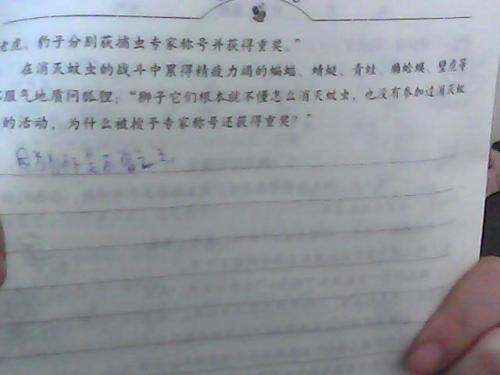 老虎、豹子分别获捕虫专家称号并获得重奖。”
在消灭蚊虫的战斗中累得精疲力竭的蝙蝠、蜻蜓、青蛙、癞蛤蟆、壁虎等
服气地质问狐狸：“狮子它们根本就不懂怎么消灭蚊虫，也没有参加过消灭蚊
的活动，为什么被授予专家称号还获得重奖？”